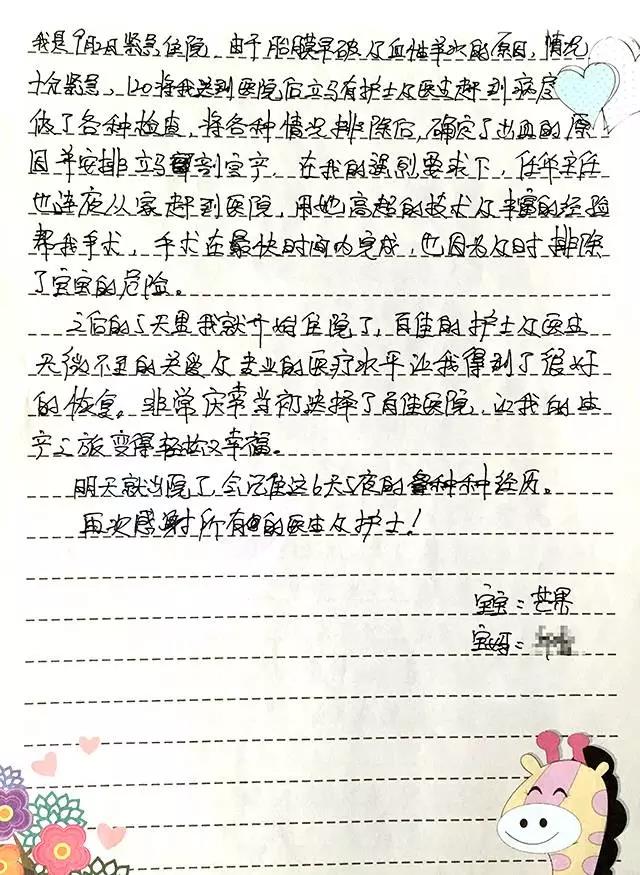 我是9月2日紧急住院，由于胎膜早破及血性羊水的原因，情况
十分紧急，120将我送到医院后立马有护士及医生赶到病房
做了各种检查，将各种情况排除后，确定了出血的原
因并安排立马剖宫产，在我的强烈要求下，任华主任
也连夜从家赶到医院，用她高超的技术及丰富的经验
帮我手术，手术在最快时间内完成，也因为及时排除
了宝宝的危险。
之后的5天里我就开始住院了，百佳的护士及医生
无微不至的关爱及专业的医疗水平让我得到了很好
的恢复。非常庆幸当初选择了百佳医院，让我的生
产之旅变得轻松又幸福。
明天就出院了，会记住这6天5夜的种种经历。
再次感谢所有的医生及护士！
宝宝：芒果
宝妈：